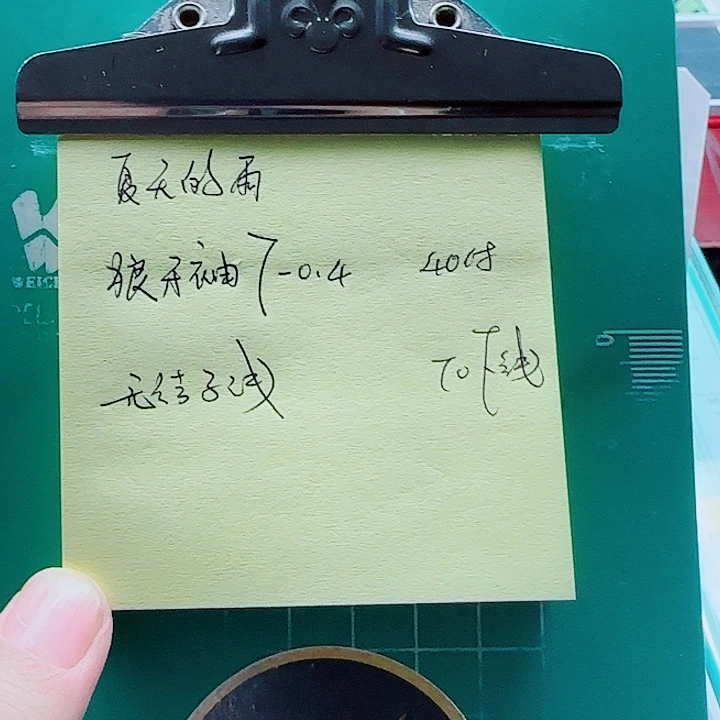 夏天的雨
狼牙袖 7-0.4 40付
无结子线 70下线